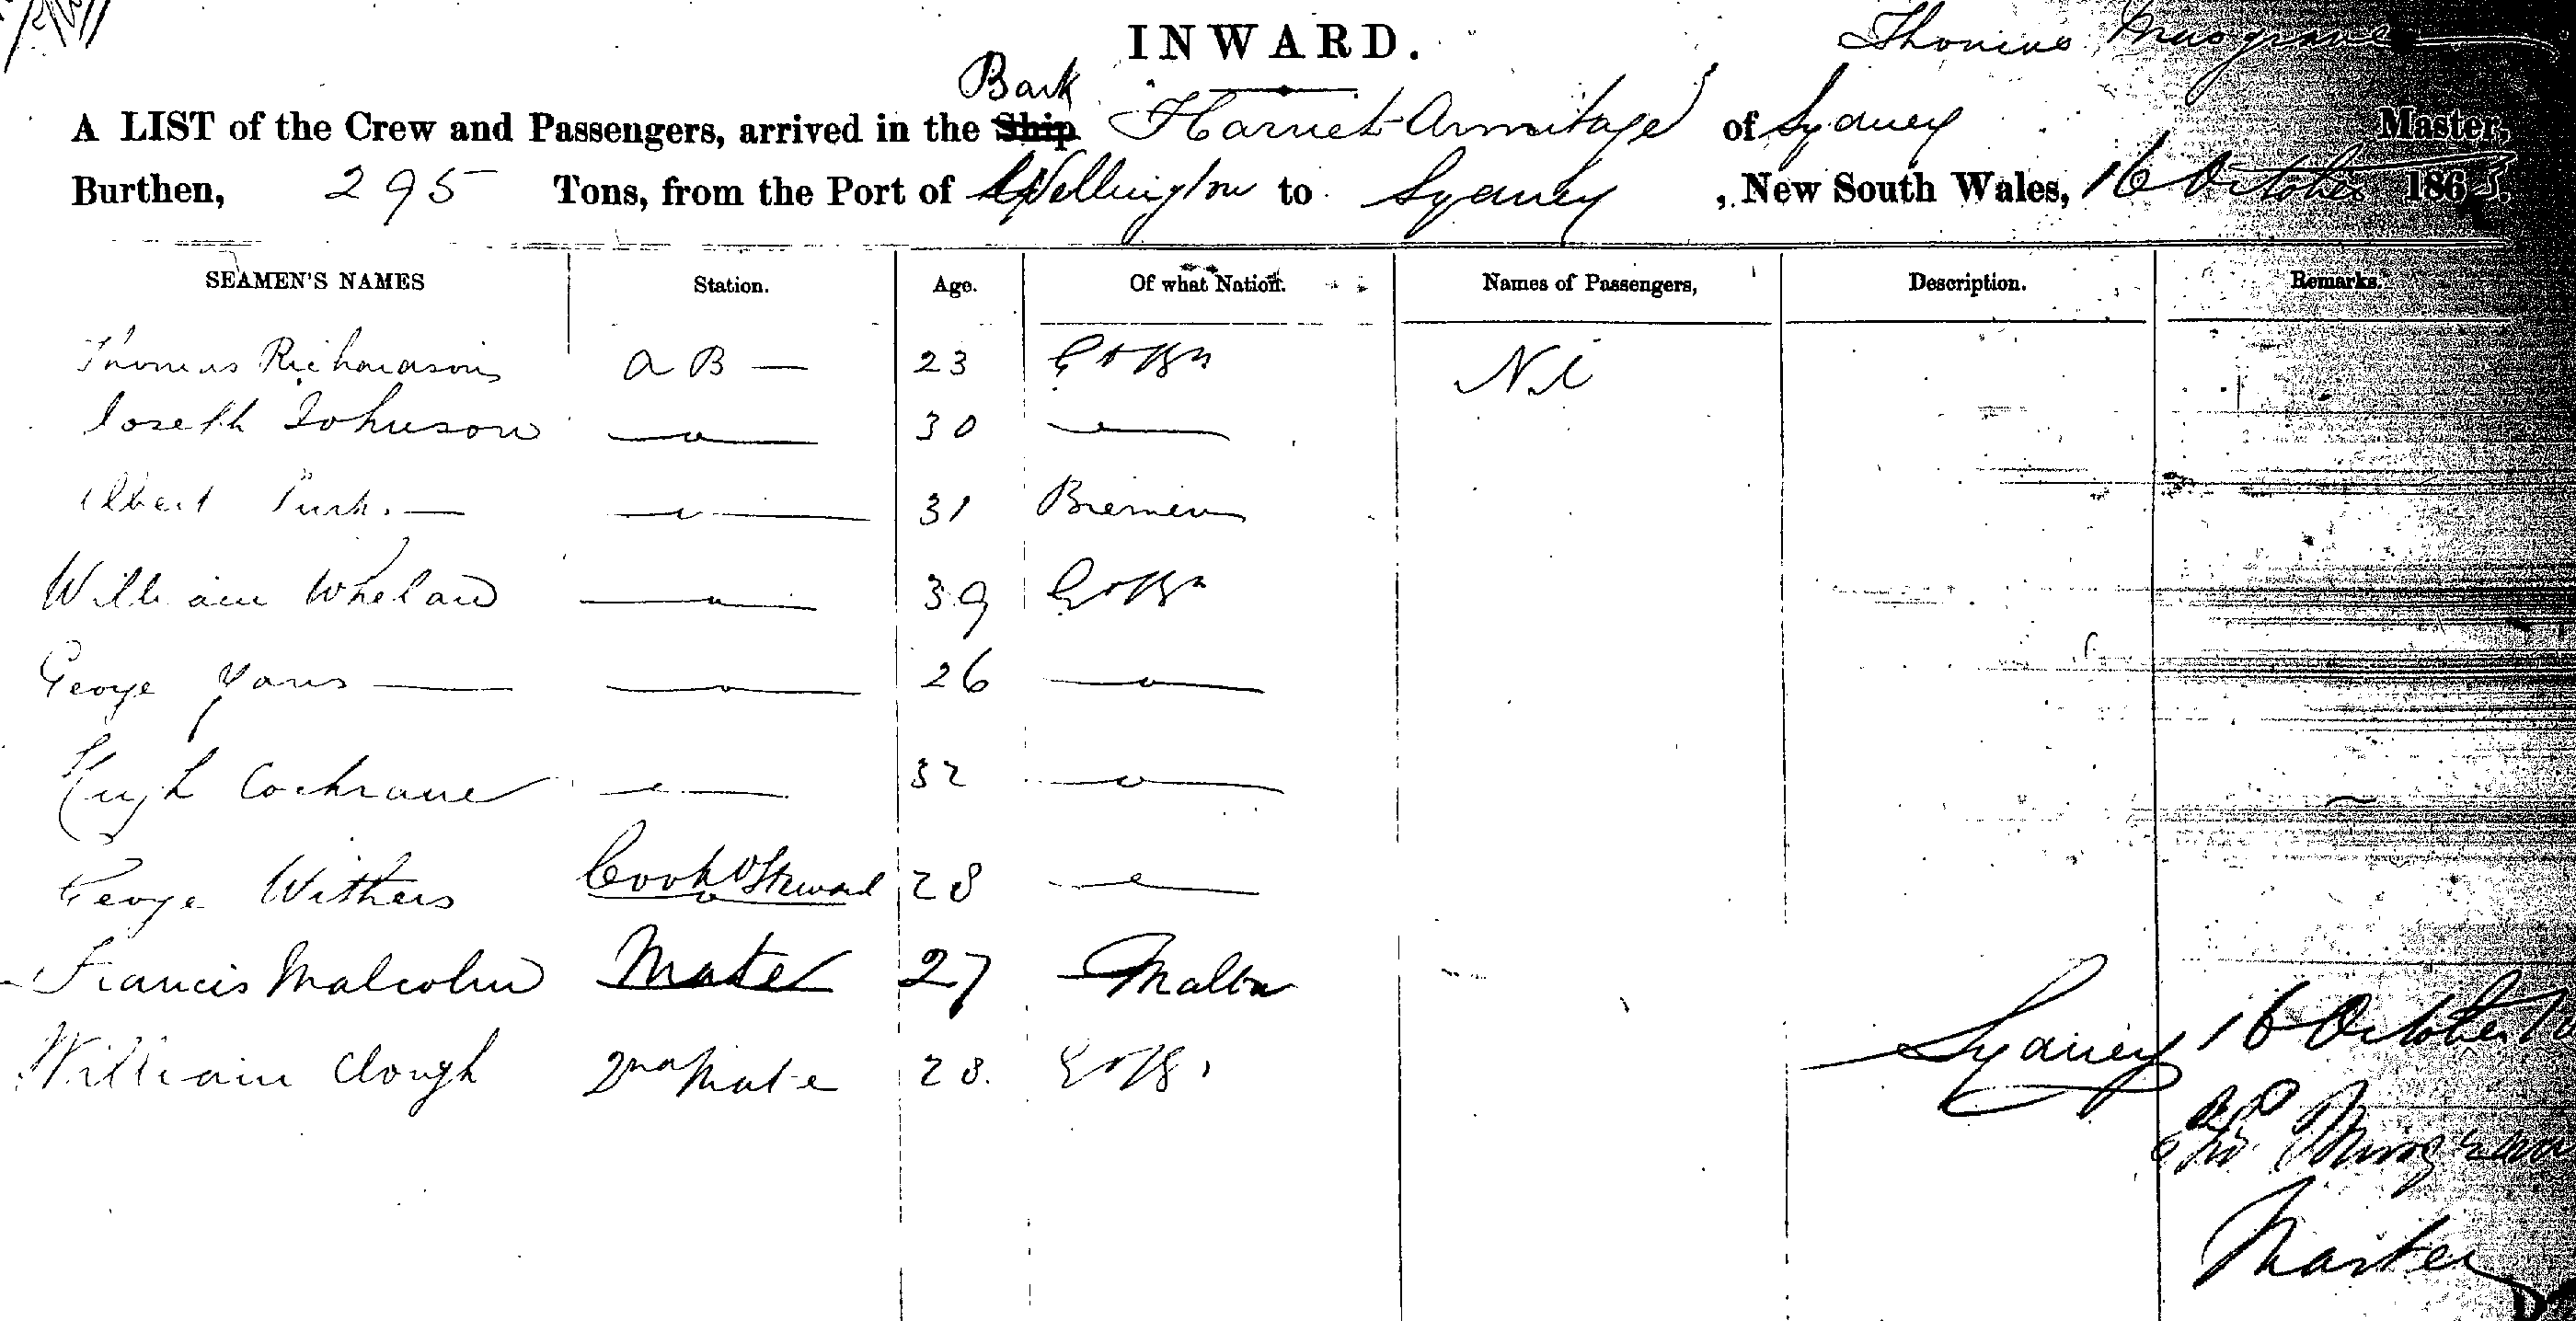 INWARD.
Thomas Musgrave
Bark
A LIST of the Crew and Passengers, arrived in the Ship Harriet Armitage of Sydney Master,
Burthen, 295 Tons, from the Port of Wellington to Sydney, New South Wales, 16 October 186
SEAMEN'S NAMES Station. Age. Of what Nation. Names of Passengers, Description. Remarks.
Thomas Richardson A B — 23 Nil
Joseph Johnson 30
Albert 31 Bremen
William Whelan 39
George 26
Hugh Cochrane 32
George Withers Cook & Steward 28
Francis Malcolm Mate 27 Malta
William Clough 2nd Mate 28.
Sydney 16 October
Tho Musgrave
Master